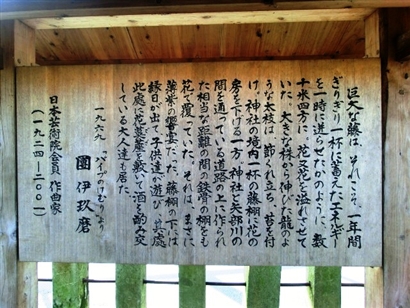 巨大な藤は、それこそ、一年間
ぎりぎり一杯に蓄えたエネルギー
を一時に迸らせたかのように、数
十米四方に、花と花を溢れさせて
いた。大きな株から伸びた龍のよ
うな太枝は、節くれ立ち、苔を付
け、神社の境内一杯の藤棚に花の
房を下げる一方、神社と矢部川の
間を通っている道路の上に作られ
た相当な距離の間の鉄骨の棚をも
花で覆っていた。それは、まさに
薄紫の饗宴だった。藤棚の下には
縁日が出て、子供達が遊び、其処
此処に花茣蓙を敷いて酒を酌み交
している大人達も居た。
一九六九 「パイプのけむり」より
團 伊玖磨
日本芸術院会員 作曲家
(一九二四―二〇〇一)